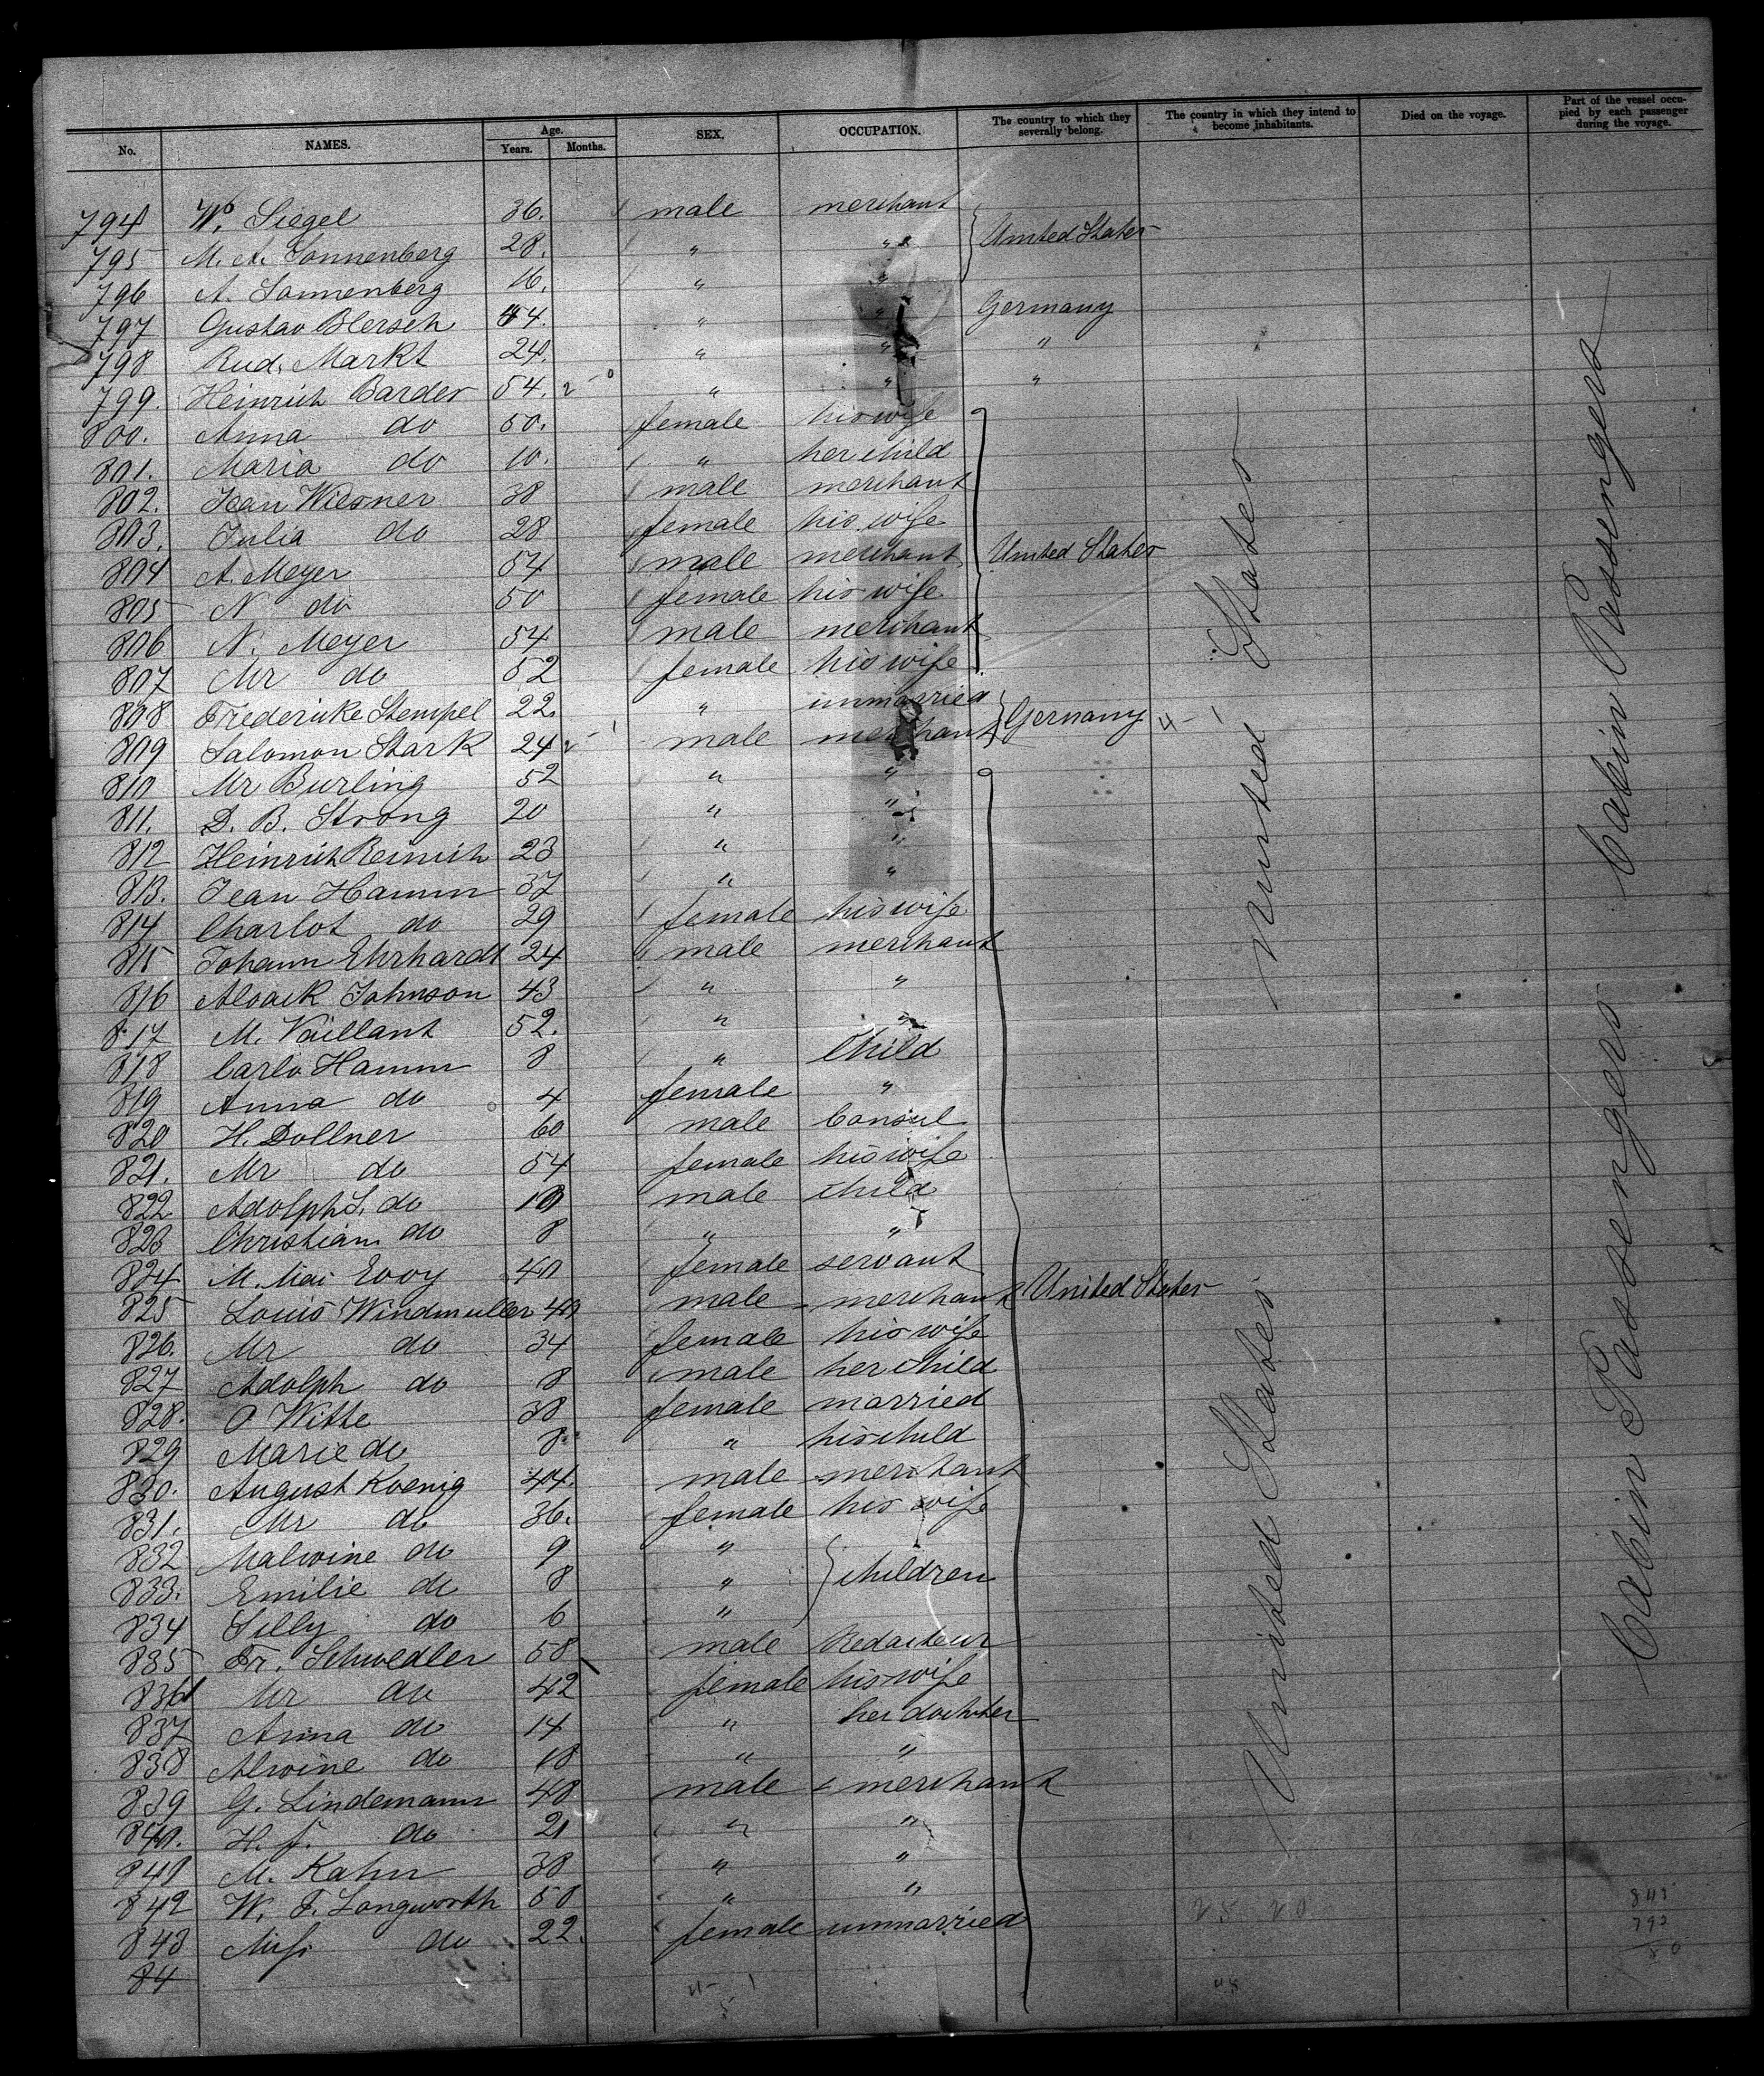 No. NAMES. Age. Years. Months. SEX. OCCUPATION. The country to which they severally belong. The country in which they intend to become inhabitants. Died on the voyage. Part of the vessel occupied by each passenger during the voyage.
794 W. Siegel 36. male merchant
795 M. A. Sonnenberg 28. " " United States
796 A. Sonnenberg 16. " "
797 Gustav Blersch 44. " " Germany
798 Rud. Markt 24. " " "
799. Heinrich Barder 54. " " "
800. Anna do 50. female his wife
801. Maria do 10. " her child
802. Jean Wiesner 38 male merchant
803. Julia do 28 female his wife
804 A. Meyer 54 male merchant United States
805 N do 50 female his wife
806 N. Meyer 54 male merchant
807 Mr do 52 female his wife
808 Frederike Stempel 22. " unmarried
809 Salomon Stark 24 male merchant Germany
810 Mr Burling 52 " "
811. D. B. Strong 20 " "
812 Heinrich Reinich 23 " "
813. Jean Hamm 37 " "
814 Charlot do 29 female his wife
815 Johann Ehrhardt 24 male merchant
816 Johnson 43 " "
817 M. Vaillant 52. " "
818 Carlo Hamm 8 " Child
819 Anna do 4 female "
820 H. Dollner 60 male Consul
821. Mr do 54 female his wife
822 Adolph S. do 10 male child
823 Christian do 8 " "
824 M. 40 female servant
825 Louis Windmuller 40 male merchant United States
826. Mr do 34 female his wife
827 Adolph do 8 male her child
828. O Witte 38 female married
829 Marie do 8 " his child
830. August Koenig 44. male merchant
831. Mr do 36. female his wife
832 Malwine do 9 "
833. Emilie do 8 " children
834 Silly do 6 "
835 Fr. Schwedler 58 male Redacteur
836 Mr do 42 female his wife
837 Anna do 14 " her dochter
838 Alwine do 18 " "
839 G. Lindemann 48 male merchant
840. H. J. do 21 " "
841 M. Kahn 38 " "
842 W. F. Longworth 50 " "
843 Miss do 22. female unmarried
84
United States
United States
Cabin Passengers
Cabin Passengers